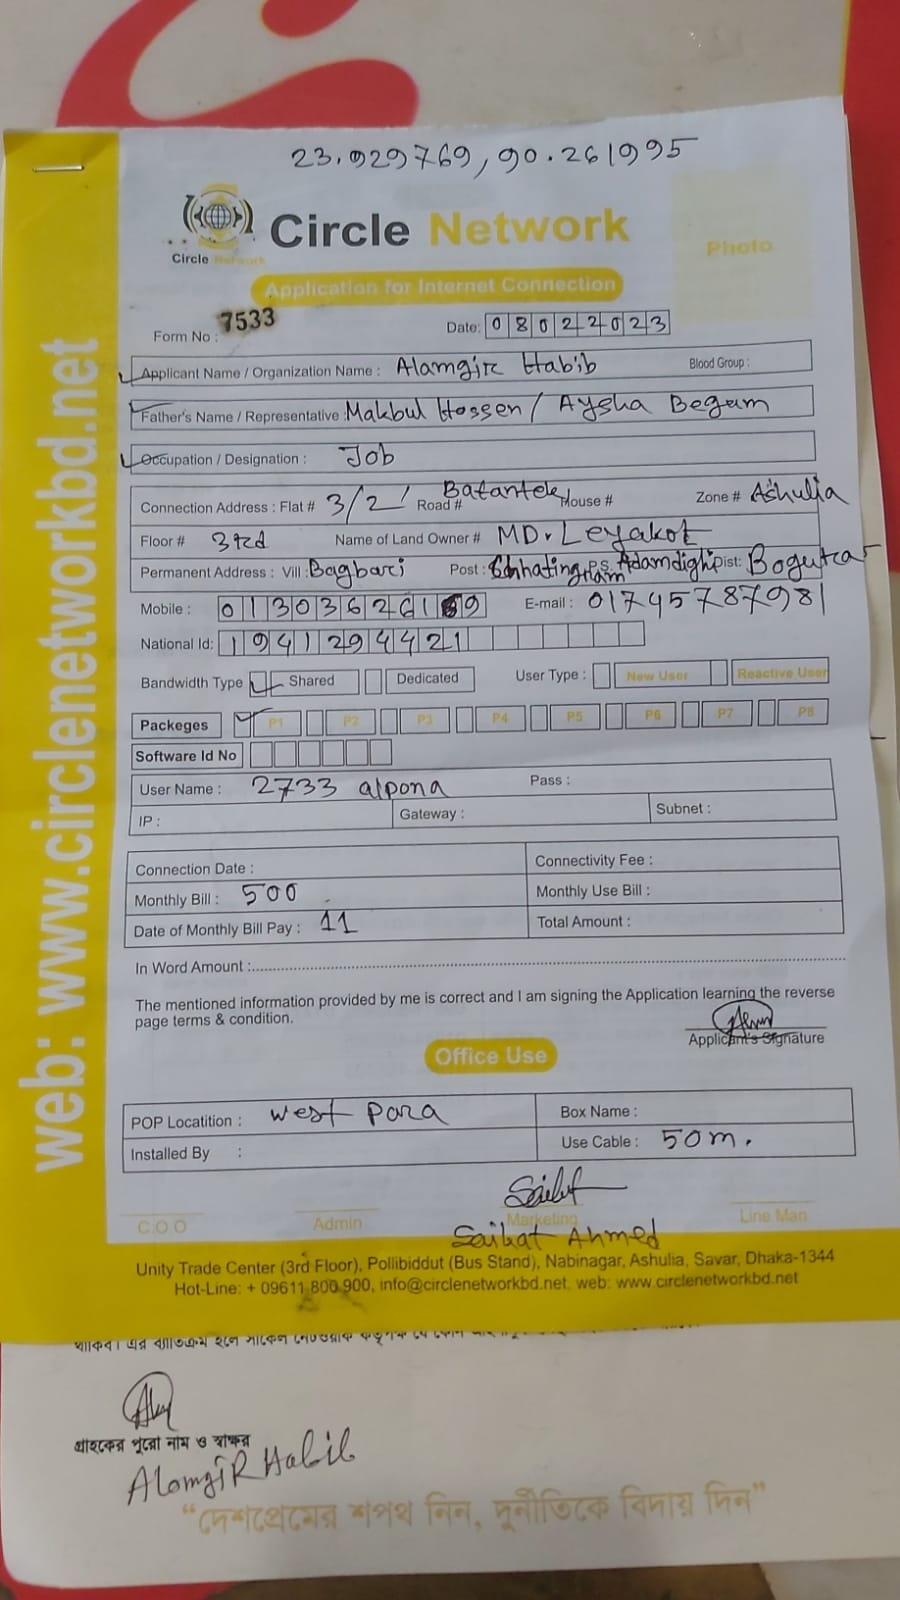 23.929769, 90.261995
Circle Network
Circle Network
Photo
Application for Internet Connection
Form No : 7533
Date: 08022023
Applicant Name / Organization Name : Alamgir Habib Blood Group :
Father's Name / Representative : Makbul Hossen / Aysha Begum
Occupation / Designation : Job
Connection Address : Flat # 3/2 Road # Batantek House # Zone # Ashulia
Floor # 3rd Name of Land Owner # MD. Leyakot
Permanent Address : Vill : Bagbari Post : Chhatingram P.S. Adamdighi Dist: Bogura
Mobile : 013036261 9 E-mail : 01745787981
National Id: 1941294421
Bandwidth Type Shared Dedicated User Type : New User Reactive User
Packeges P1 P2 P3 P4 P5 P6 P7 P8
Software Id No
User Name : 2733 alpona Pass :
IP : Gateway : Subnet :
Connection Date : Connectivity Fee :
Monthly Bill : 500 Monthly Use Bill :
Date of Monthly Bill Pay : 11 Total Amount :
In Word Amount :
The mentioned information provided by me is correct and I am signing the Application learning the reverse
page terms & condition.
Applicant's Signature
Office Use
POP Locatition : west para Box Name :
Installed By : Use Cable : 50m.
C.O.O Admin Marketing Line Man
Saikat Ahmed
Unity Trade Center (3rd Floor), Pollibiddut (Bus Stand), Nabinagar, Ashulia, Savar, Dhaka-1344
Hot-Line: + 09611 800 900, info@circlenetworkbd.net. web: www.circlenetworkbd.net
web: www.circlenetworkbd.net
গ্রাহকের পুরো নাম ও স্বাক্ষর
AlomgiR Habib
“দেশপ্রেমের শপথ নিন, দুর্নীতিকে বিদায় দিন”